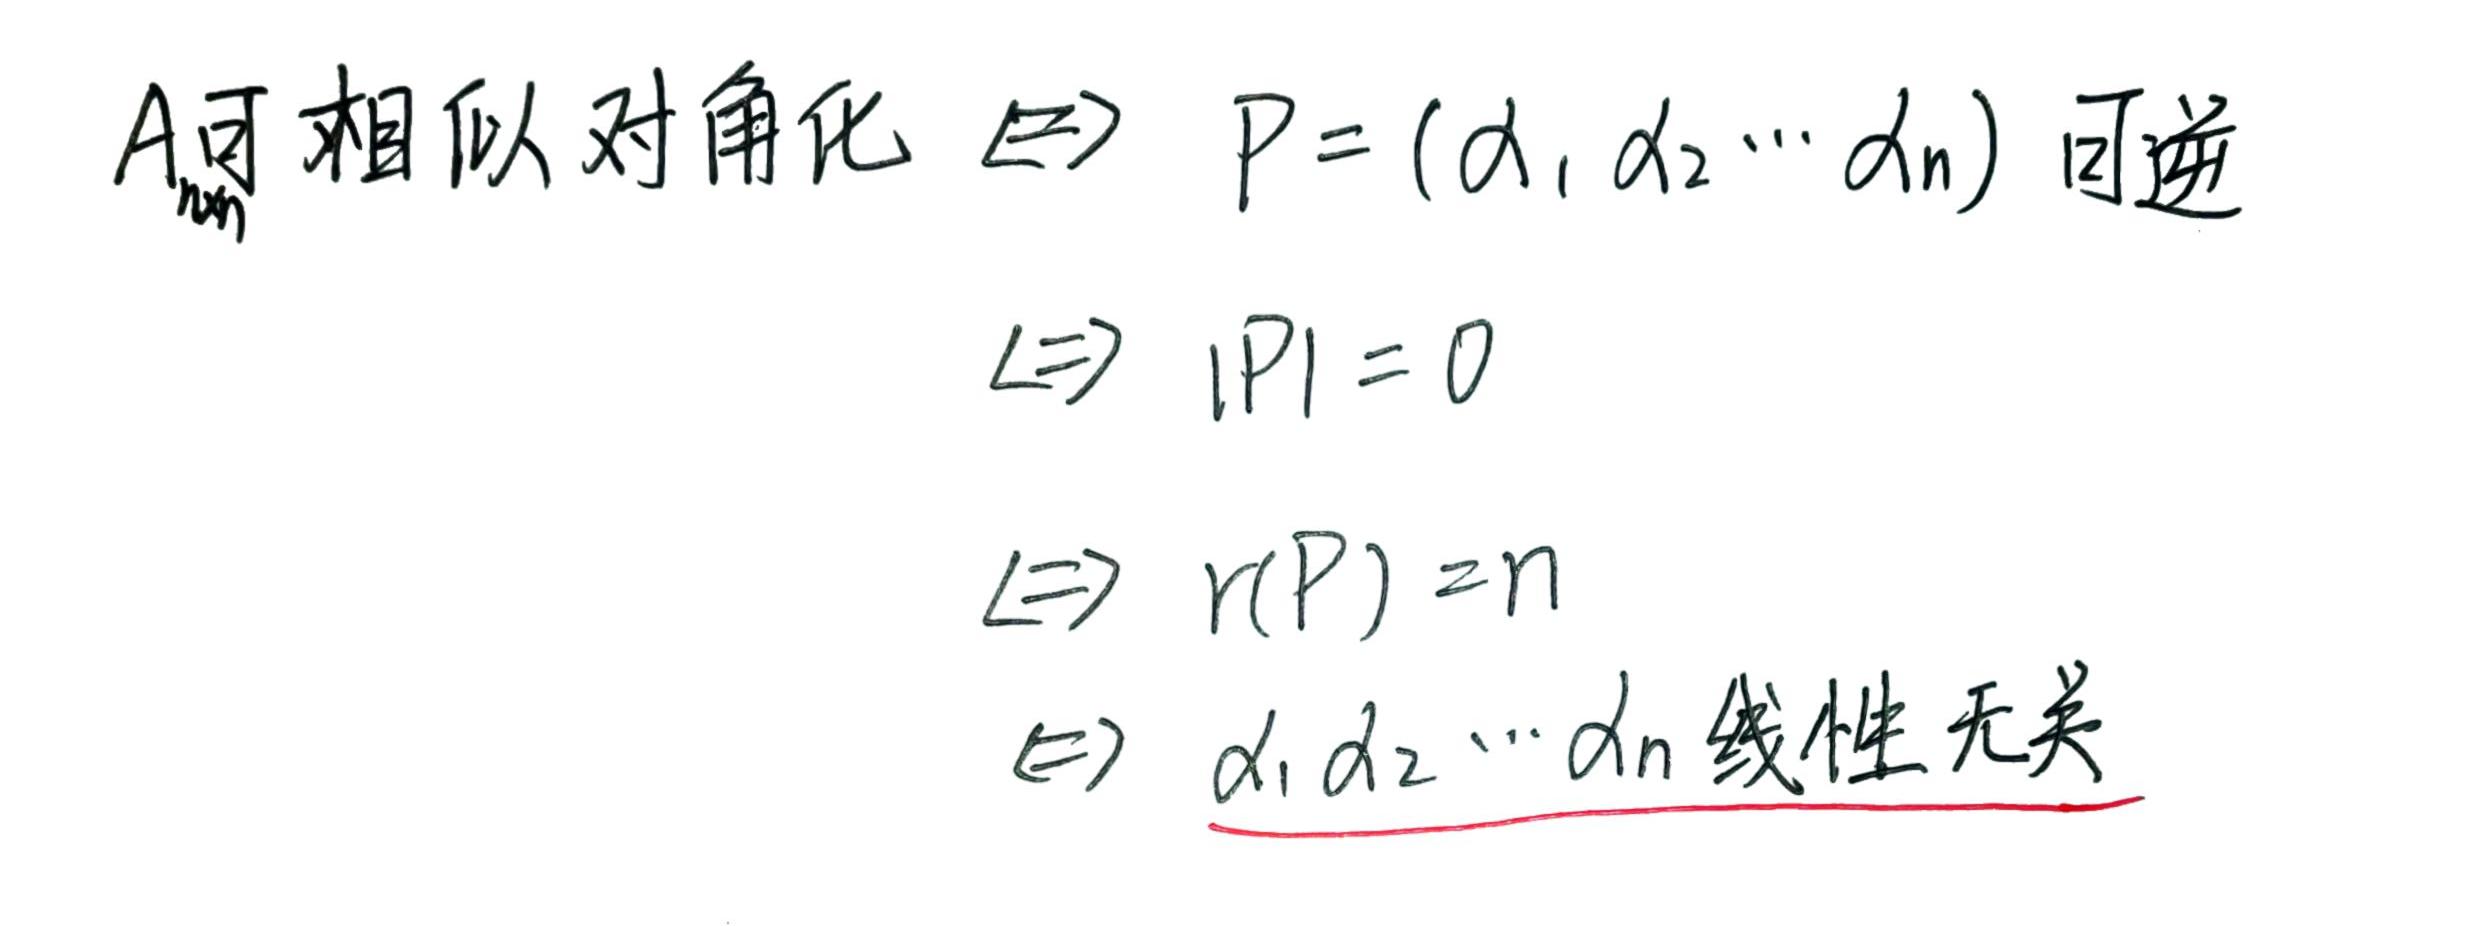 A n×n 可相似对角化 ⇔ P = (α1 α2 … αn) 可逆
⇔ |P| = 0
⇔ r(P) = n
⇔ α1 α2 … αn 线性无关